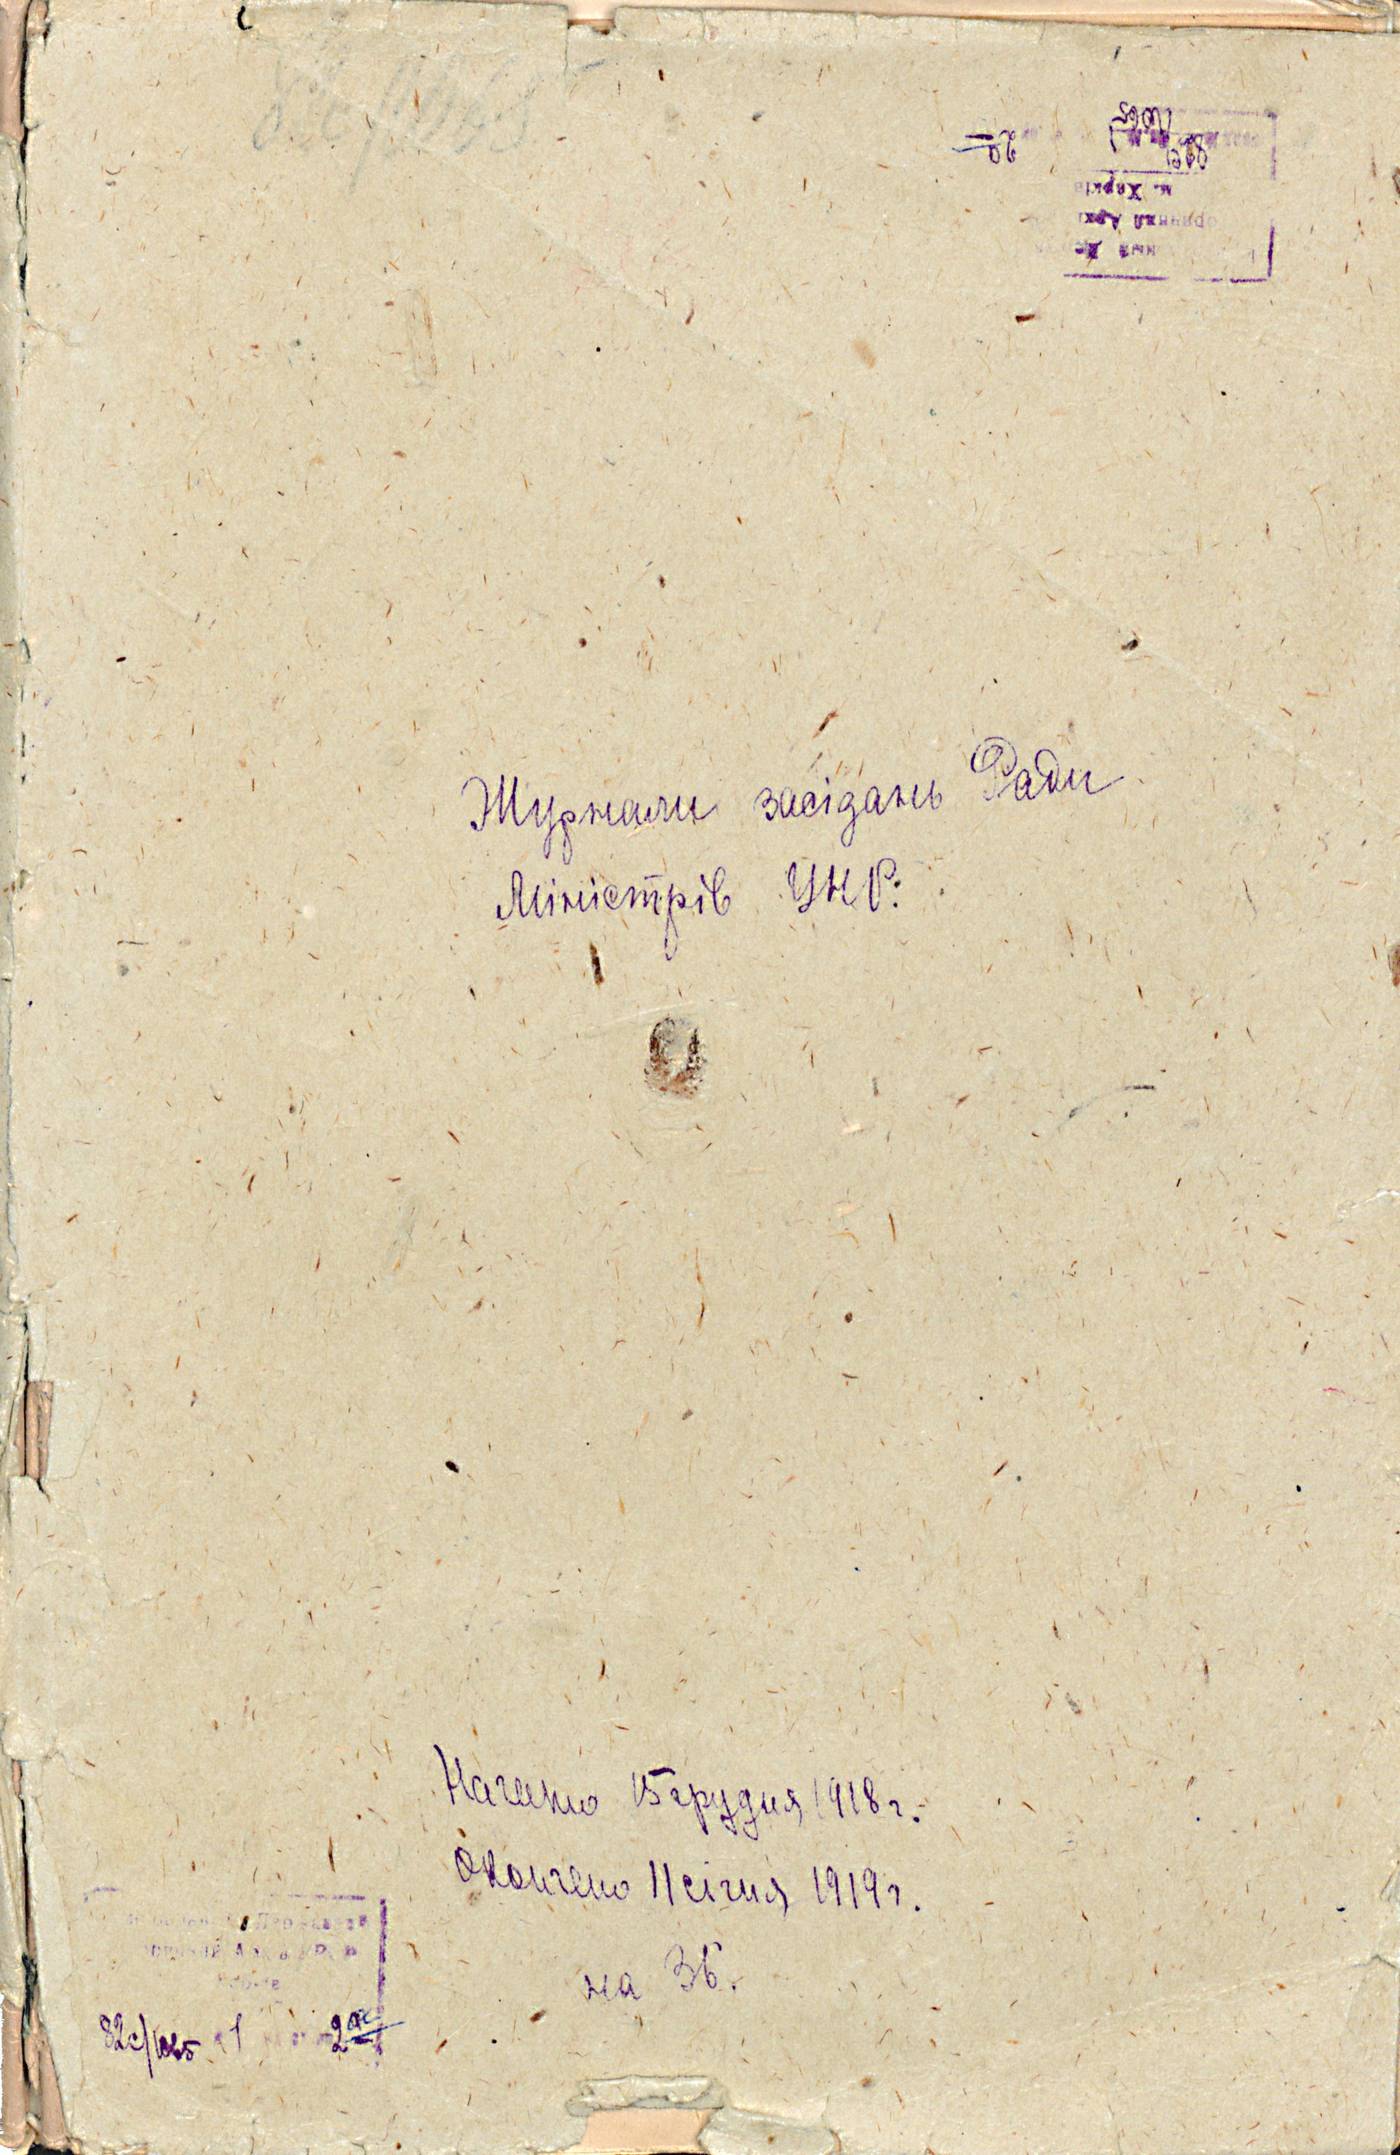 м. Харків
Журнали засідань Ради
Міністрів УНР.
Начато 15 грудня 1918 г.
Окончено 11 січня 1919 г.
на 36.
82с/1065 1 2а